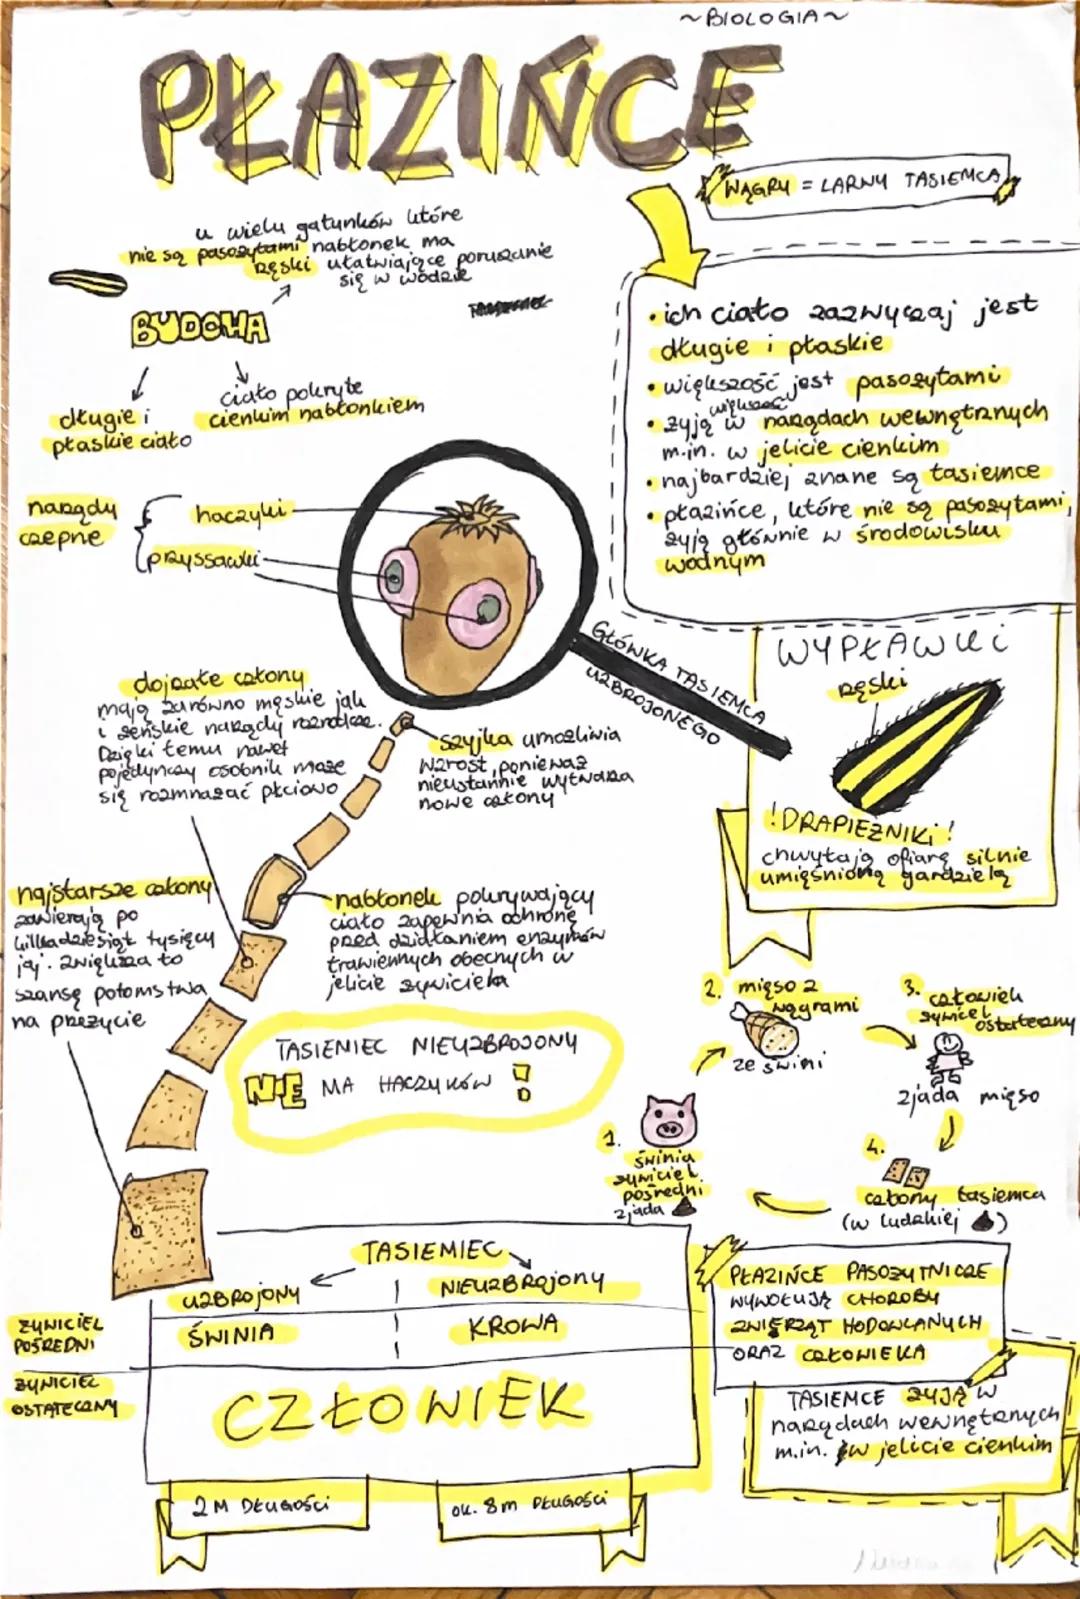 ~BIOLOGIA~
PŁAZIŃCE
WĄGRY = LARWY TASIEMCA
u wielu gatunków które
nie są pasożytami nabłonek ma
rzęski ułatwiające poruszanie
się w wodzie
BUDOWA
długie i
płaskie ciało
ciało pokryte
cienkim nabłonkiem
• ich ciało zazwyczaj jest
długie i płaskie
• większość jest pasożytami
większość
• żyją w narządach wewnętrznych
m.in. w jelicie cienkim
• najbardziej znane są tasiemce
• płazińce, które nie są pasożytami,
żyją głównie w środowisku
wodnym
narządy
czepne
haczyki
przyssawki
GŁÓWKA TASIEMCA
UZBROJONEGO
WYPŁAWKI
rzęski
!DRAPIEŻNIKI!
chwytają ofiarę silnie
umięśnioną gardzielą
dojrzałe człony
mają zarówno męskie jak
i żeńskie narządy rozrodcze.
Dzięki temu nawet
pojedynczy osobnik może
się rozmnażać płciowo
szyjka umożliwia
wzrost, ponieważ
nieustannie wytwarza
nowe człony
najstarsze człony
zawierają po
kilkadziesiąt tysięcy
jaj. Zwiększa to
szansę potomstwa
na przeżycie
nabłonek pokrywający
ciało zapewnia ochronę
przed działaniem enzymów
trawiennych obecnych w
jelicie żywiciela
TASIENIEC NIEUZBROJONY
NIE MA HACZYKÓW !
1.
świnia
żywiciel
pośredni
zjada
2. mięso z
wągrami
ze świni
3. człowiek
żywiciel
ostateczny
zjada mięso
4.
człony tasiemca
(w ludzkiej )
TASIEMIEC
UZBROJONY
NIEUZBROJONY
ŻYWICIEL
POŚREDNI
ŚWINIA
KROWA
ŻYWICIEL
OSTATECZNY
CZŁOWIEK
2 M DŁUGOŚCI
ok. 8m DŁUGOŚCI
PŁAZIŃCE PASOŻYTNICZE
WYWOŁUJĄ CHOROBY
ZWIERZĄT HODOWLANYCH
ORAZ CZŁOWIEKA
TASIEMCE ŻYJĄ W
narządach wewnętrznych
m.in. w jelicie cienkim